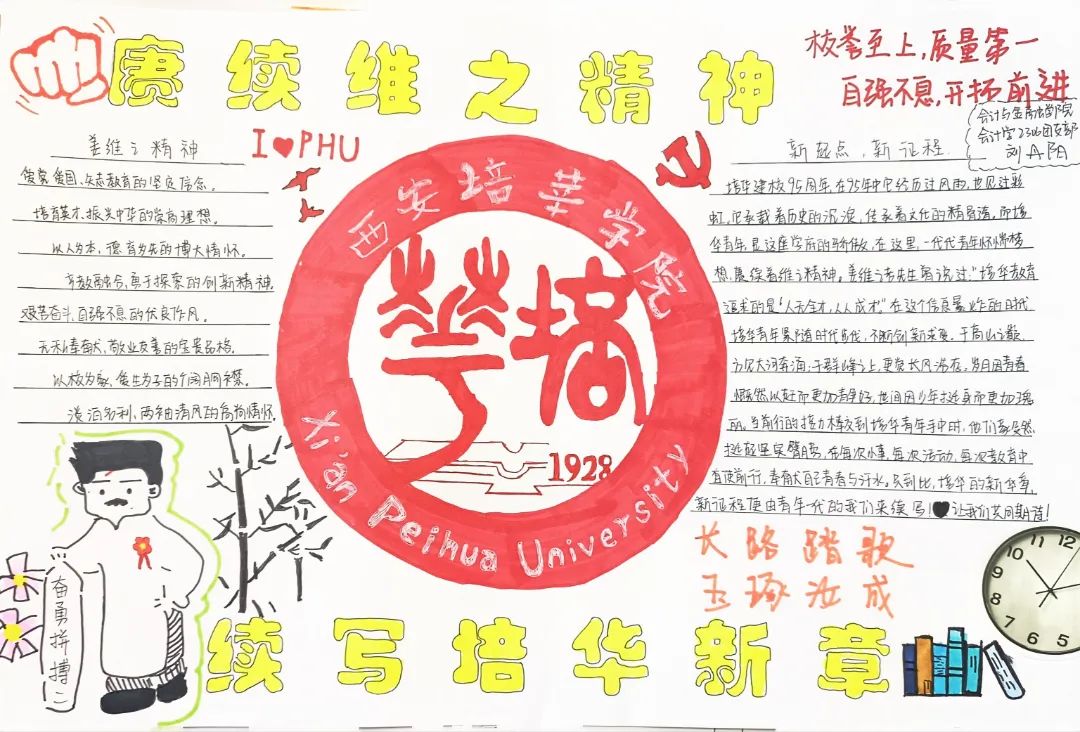 赓续维之精神
校誉至上,质量第一
自强不息,开拓前进
会计与金融学院
会计学2306团支部
姜维之精神
I❤PHU
爱党爱国、矢志教育的坚定信念。
培育英才、振兴中华的崇高理想。
以人为本、德育为先的博大情怀。
产教融合、勇于探索的创新精神.
艰苦奋斗、自强不息的优良作风。
无私奉献、敬业友善的宝贵品格。
以校为家、爱生为子的
淡泊名利、两袖清风的高尚情怀.
西安培华学院
华培
1928
Xi'an Peihua University
新起点,新征程.
培华建校95周年,在95年中它经历过风雨,也见过彩
虹,它承载着历史的沉淀,传承着文化的精髓,而培
华青年是这座学府的骄傲,在这里,一代代青年怀揣梦
想,赓续着维之精神。姜维之老先生曾说过:"培华教育
追求的是'人无全才,人人成才'"在这个信息爆炸的时代
培华青年紧随时代步伐,不断创新求变,于高山之巅,
方见大河奔涌;于群峰之上,更觉长风浩荡,岁月因青春
慨然以赴而更加静好,世间因少年挺身而更加瑰
丽。当前行的接力棒交到培华青年手中时,他们
挺起坚实臂膀,在每次比赛,每次活动,每次教育中
奋使前行,奉献自己青春与汗水,
新征程便由青年一代的我们来续写!❤让我们共同期待!
长路踏歌
玉琢汝成
奋勇拼搏
10 11 12
9
8
7 6 5
续写培华新章